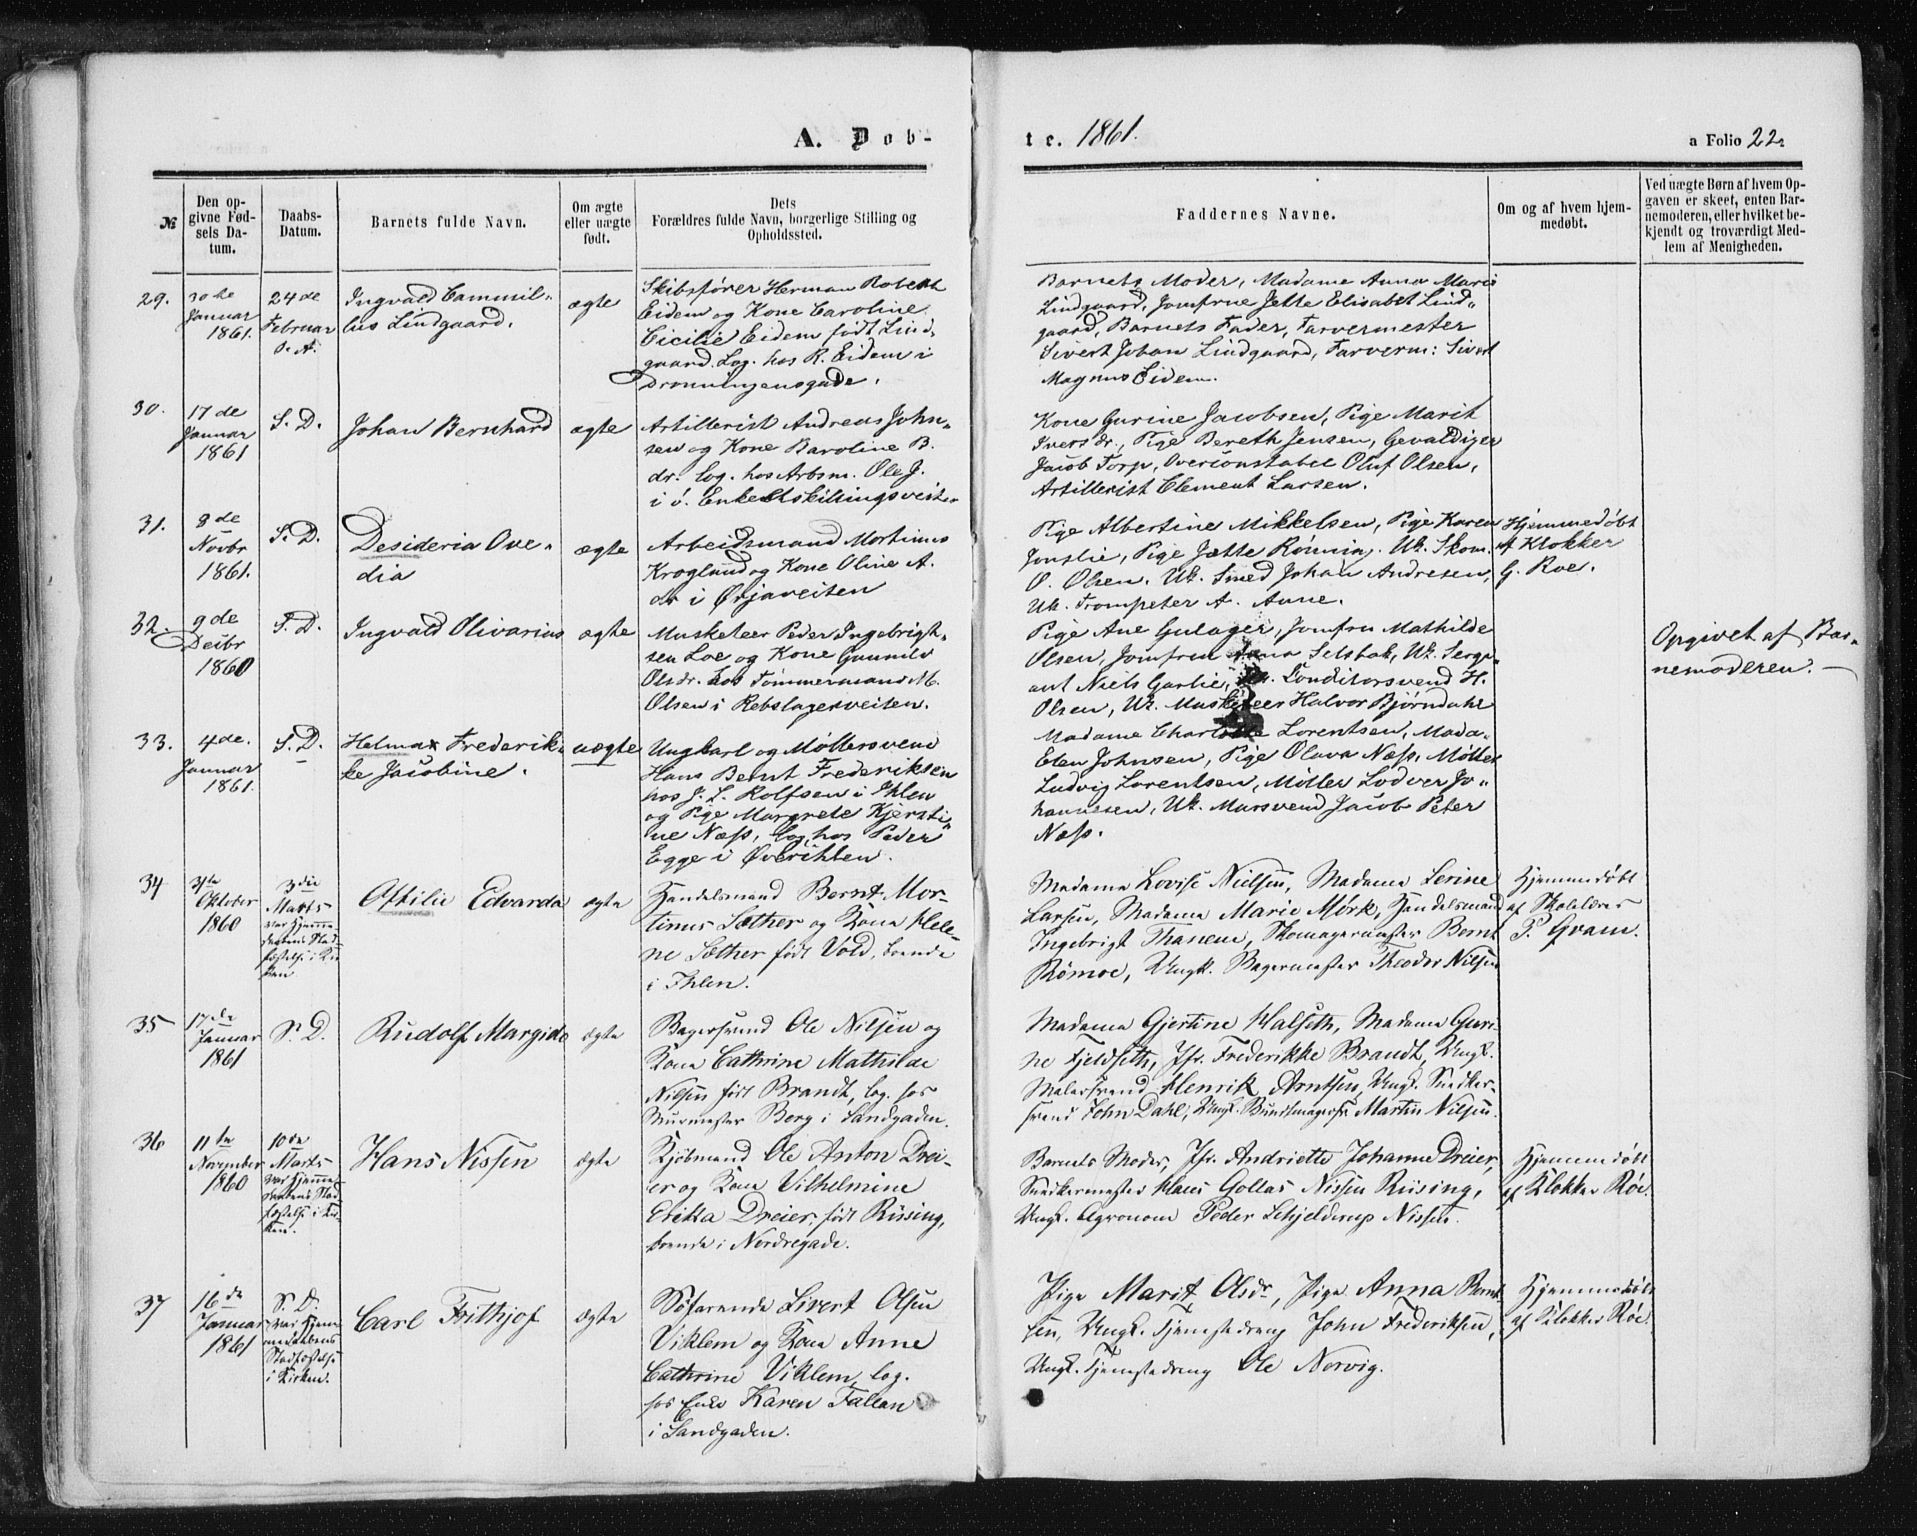 A. Døb-
te. 1861.
a Folio 22
№
Den op-
givne Fød-
sels Da-
tum.
Daabs-
Datum.
Barnets fulde Navn.
Om ægte
eller uægte
født.
Dets
Forældres fulde Navn, borgerlige Stilling og
Opholdssted.
Faddernes Navne.
Om og af hvem hjem-
medøbt.
Ved uægte Børn af hvem Op-
gaven er skeet, enten Bar-
nemoderen, eller hvilket be-
kjendt og troværdigt Med-
lem af Menigheden.
29.
30te
Januar
1861.
24de
Februar
s. A.
Ingvald Cammil-
lus Lindgaard.
ægte
Skibsfører Herman Robert
Eidem og Kone Caroline
Cicilie Eidem født Lind-
gaard. Log. hos R. Eidem i
Dronningensgade.
Barnets Moder, Madame Anna Marie
Lindgaard, Jomfrue Jette Elisabet Lind-
gaard, Barnets Fader, Farvermester
Sivert Johan Lindgaard, Farverm: Sivert
Magnus Eidem.
30.
17de
Januar
1861
S. D.
Johan Bernhard
ægte
Artillerist Andreas John-
sen og Kone Baroline B.
dr. log. hos Arbsm. Ole J.
i ø. Enkeltskillingsveite.
Kone Gurine Jacobsen, Pige Marit
Iversdr., Pige Bereth Jensen, Gevaldiger
Jacob Torp, Overconstabel Oluf Olsen,
Artillerist Clement Larsen.
31.
8de
Novbr
1861.
S. D.
Desideria Ove-
dia
ægte
Arbeidsmand Mortinus
Kroglund og Kone Oline A.
dr i Ørjaveiten
Pige Albertine Mikkelsen, Pige Karen
Jonslie, Pige Jette Rømnin. Uk. Skom.
O. Olsen. Uk. Smed Johan Andresen,
Uk. Trompeter A. Aune.
Hjemmedøbt
af Klokker
G. Roe.
32.
9de
Decbr
1860
S. D.
Ingvald Olivarius
ægte
Musketeer Peder Ingebrigt-
sen Loe og Kone Gunnild
Olsdr. hos Tømmermand M.
Olsen i Rebslagerveiten.
Pige Ane Gulager, Jomfru Mathilde
Olsen, Jomfrue Anna Selsbak, Uk. Serge-
ant Niels Garlie, Uk. Conditorsvend H.
Olsen, Uk. Musketeer Halvor Bjørndahl
Opgivet af Bar-
nemoderen. —
33.
4de.
Januar
1861.
S. D.
Helma Frederik-
ke Jacobine.
uægte
Ungkarl og Møllersvend
Hans Bernt Frederiksen
hos J. L. Rolfsen i Ihlen
og Pige Margrete Kjersti-
ne Næss, log. hos Peder
Egge i Øvreihlen.
Madame Charlotte Lorentsen, Mada-
Elen Johnsen, Pige Olava Næss, Møller
Ludvig Lorentsen, Møller Lodver Jo-
hannesen, Uk. Mursvend Jacob Peter
Næss.
34
31te
Oktober
1860
3die
Marts
var Hjemme
daabens Stad-
fæstelse i Kir-
ken
Othilie Edvarda
ægte
Handelsmand Bernt Mor-
tinus Sæther og Kone Hele-
ne Sæther født Vold, boende
i Ihlen.
Madame Lovise Nielsen, Madame Serine
Larsen, Madame Marie Mørk, Handelsmand
Ingebrigt Thanem, Skomagermester Bernt
Rømoe, Ungk. Bagermester Theodor Nilsen
Hjemmedøbt
af Skolelærer
P. Gram.
35
17de
Januar
1861
S. D.
Rudolf Margido
ægte
Bagersvend Ole Nilsen og
Kone Cathrine Mathilde
Nilsen født Brandt, log. hos
Murmester Berg i Sandgaden.
Madame Gjertine Halseth, Madame Guri-
ne Fjeldseth, Jfr. Frederikke Brandt, Ungk.
Malersvend Henrik Arntsen, Ungk. Snedker-
svend John Dahl, Ungk. Buntmagersv. Martin Nilsen.
36
11te
November
1860
10de
Marts
var Hjemme-
daabens Stad-
fæstelse i Kir-
ken.
Hans Nissen
ægte
Kjøbmand Ole Anton Drei-
er og Kone Vilhelmine
Erikka Dreier, født Riising,
boende i Nordregade.
Barnets Moder, Jfr. Andriette Johanne Dreier,
Snedkermester Claus Gollas Nissen Riising,
Ungk. Agronom Peder Schjelderup Nissen.
Hjemmedøbt
af Klokker Röe.
37
16de
Januar
1861
S. D.
var Hjem-
medaabens
Stadfæstelse
i Kirken.
Carl Frithjof
ægte
Søfarende Sivert Olsen
Viklem og Kone Anne
Cathrine Viklem, log.
hos Enke Karen Fallan
i Sandgaden.
Pige Marit Olsdr, Pige Anna Bernt-
sen, Ungk. Tjenestedreng John Frederiksen,
Ungk. Tjenestedreng Ole Norvig.
Hjemmedøbt
af Klokker Röe.